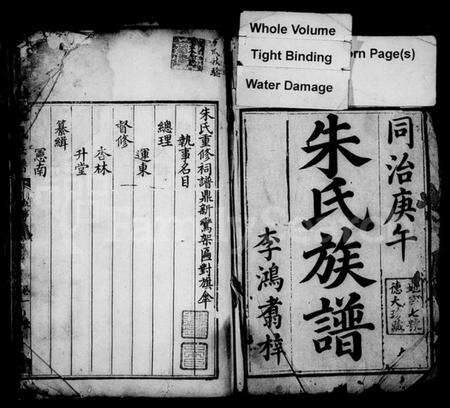 Whole Volume
Tight Binding
Water Damage
orn Page(s)
同治庚午
朱氏族譜
李鴻翥梓
德大珍藏
朱氏重修祠譜鼎新鸞架區對旗傘
執事名目
總理
運東
督修
杏林
升堂
纂緝
憲南